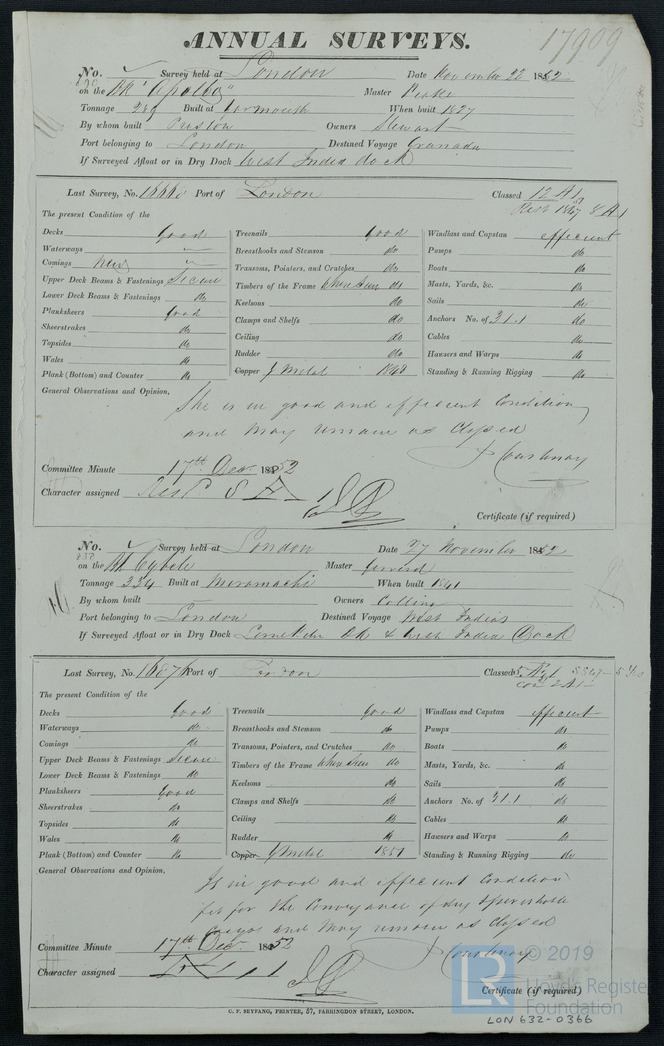 17909
ANNUAL SURVEYS.
No. Survey held at London Date November 22 1852
on the Bk "Apollo" Master Peake
Tonnage 289 Built at Yarmouth When built 1827
By whom built Preston Owners Stewart
Port belonging to London Destined Voyage Granada
If Surveyed Afloat or in Dry Dock West India dock
Last Survey, No. Port of London Classed 12 A1
The present Condition of the
Decks Good Treenails Good Windlass and Capstan efficient
Waterways Breasthooks and Stemson do Pumps do
Comings New Transoms, Pointers, and Crutches do Boats do
Upper Deck Beams & Fastenings Secure Timbers of the Frame when seen do Masts, Yards, &c. do
Lower Deck Beams & Fastenings do Keelsons do Sails do
Planksheers Good Clamps and Shelfs do Anchors No. of 3.1.1 do
Sheerstrakes do Ceiling do Cables do
Topsides do Rudder do Hawsers and Warps do
Wales do Copper Y Metal 1848 Standing & Running Rigging do
Plank (Bottom) and Counter do
General Observations and Opinion,
She is in good and efficient Condition
and may remain as Classed
J Courtenay
Committee Minute 17th Decr 1852
Character assigned
Certificate (if required)
No. Survey held at London Date 27 November 1852
on the Bk Cybele Master
Tonnage 334 Built at Miramachi When built 1841
By whom built Owners Collins
Port belonging to London Destined Voyage West Indies
If Surveyed Afloat or in Dry Dock Dk & West India Dock
Last Survey, No. Port of London Classed
The present Condition of the
Decks Good Treenails Good Windlass and Capstan efficient
Waterways do Breasthooks and Stemson do Pumps do
Comings do Transoms, Pointers, and Crutches do Boats do
Upper Deck Beams & Fastenings Secure Timbers of the Frame when seen do Masts, Yards, &c. do
Lower Deck Beams & Fastenings do Keelsons do Sails do
Planksheers Good Clamps and Shelfs do Anchors No. of 3.1.1 do
Sheerstrakes do Ceiling do Cables do
Topsides do Rudder do Hawsers and Warps do
Wales do Copper Y Metal 1851 Standing & Running Rigging do
Plank (Bottom) and Counter do
General Observations and Opinion,
Is in good and efficient Condition
fit for the Conveyance of dry & perishable
Cargos and may remain as Classed
J Courtenay
Committee Minute 17th Decr 1852
Character assigned
Certificate (if required)
C. F. SEYFANG, PRINTER, 57, FARRINGDON STREET, LONDON.
LR © 2019
Lloyd's Register
Foundation
LON 632-0366